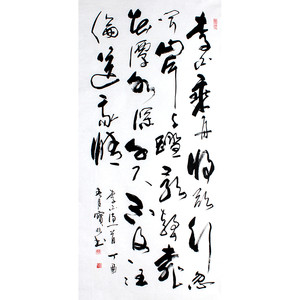 李白乘舟将欲行忽
闻岸上踏歌聲桃
花潭水深千尺不及汪
倫送我情
李白诗一首 丁酉
书